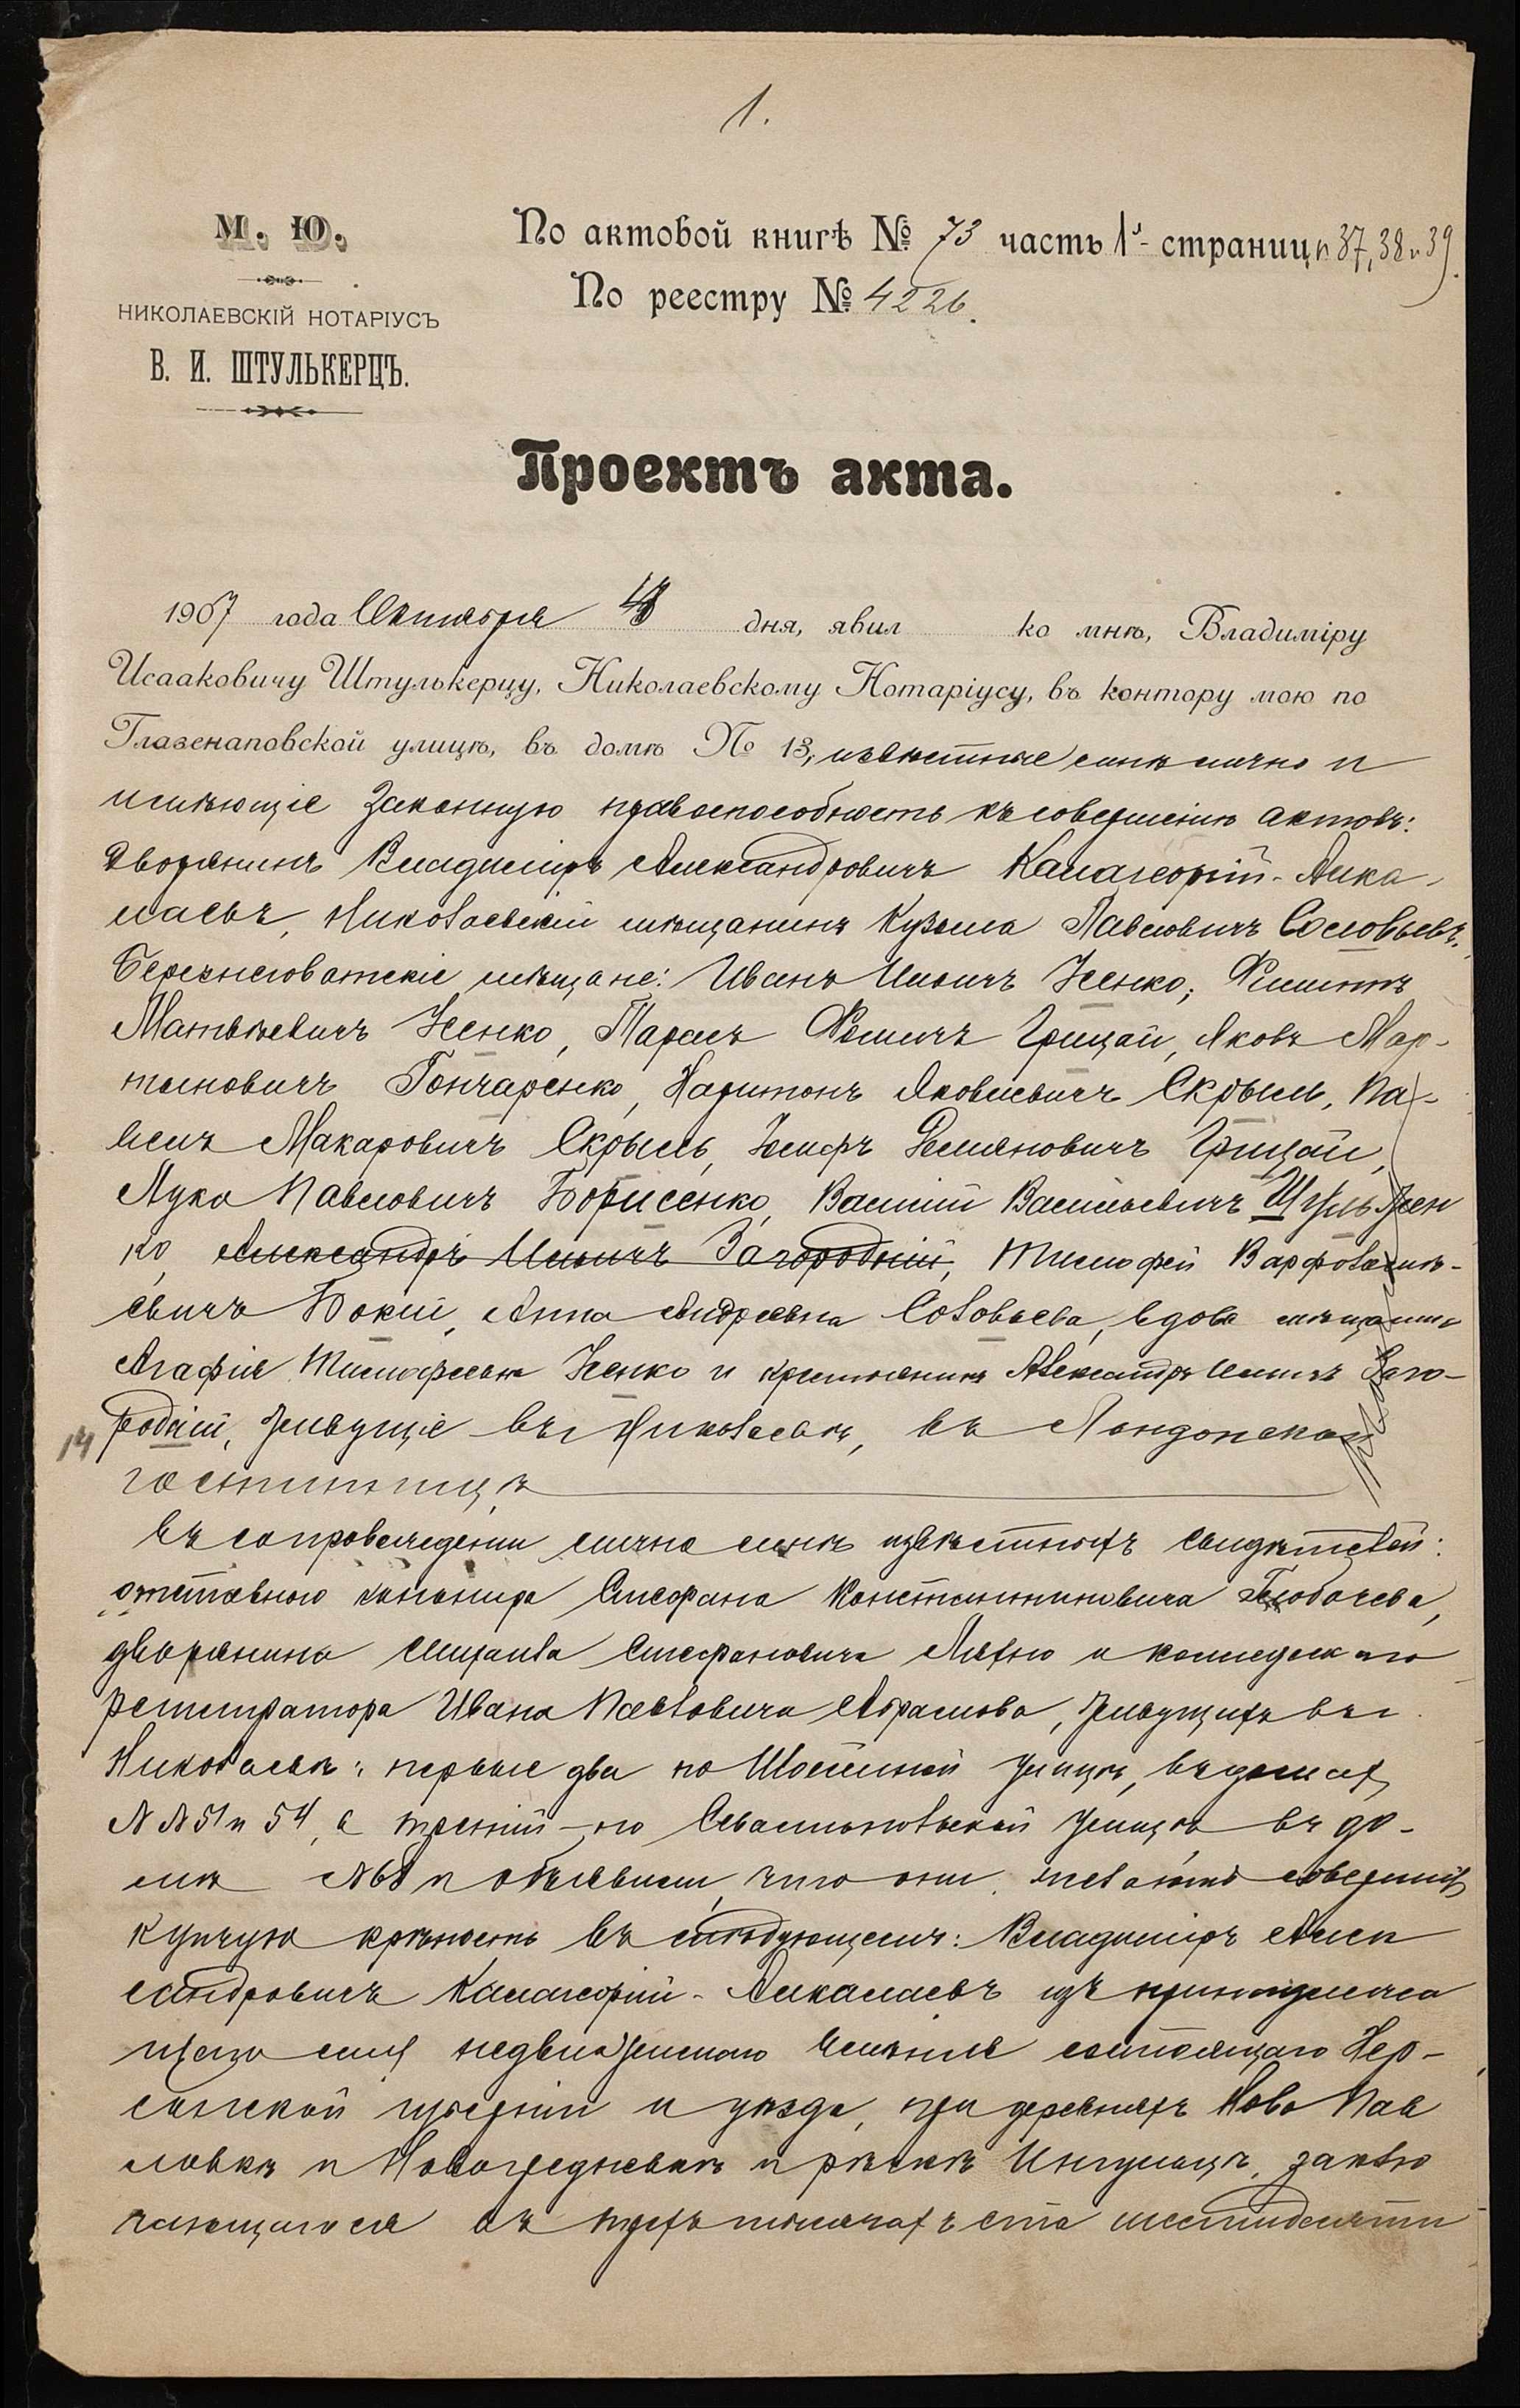 1.
М. Ю.
По актовой книгѣ № 73 часть 1я страниц 37, 38 и 39.
По реестру № 4226.
НИКОЛАЕВСКІЙ НОТАРІУСЪ
В. И. ШТУЛЬКЕРЦЪ.
Проектъ акта.
1907 года Октября дня, явил ко мнѣ, Владиміру
Исааковичу Штулькерцу, Николаевскому Нотаріусу, въ контору мою по
Глазенаповской улицѣ, въ домѣ № 13, извѣстные мнѣ лично и
имѣющіе законную правоспособность къ совершенію актовъ:
дворянинъ Владиміръ Александровичъ Калагеоргій-Алка-
лаевъ, Николаевскій мѣщанинъ Кузьма Павловичъ Соловьевъ,
Березнеговатскіе мѣщане: Иванъ Ильичъ Усенко, Филиппъ
Матвѣевичъ Усенко, Тарасъ Фомичъ Грицай, Яковъ Мар-
тыновичъ Гончаренко, Харитонъ Яковлевичъ Скрыль, Па-
велъ Макаровичъ Скрыль, Іосифъ Демяновичъ Грицай,
Лука Павловичъ Борисенко, Василій Васильевичъ Шульжен
ко, Александръ Ильичъ Загородній, Тимофей Варфоломѣ-
евичъ Бокій, Анна Андреевна Соловьева, вдова мѣщанина
Агафія Тимофеевна Усенко и крестьянинъ Александръ Ильичъ Заго-
родній, живущіе въ г. Николаевѣ, въ Лондонской
14
гостинницѣ
въ сопровожденіи лично мнѣ извѣстныхъ свидѣтелей:
отставного канонира Стефана Константиновича Голобачева,
дворянина Михаила Стефановича Ляхно и коллежскаго
регистратора Ивана Павловича Абрамова, живущихъ въ г.
Николаевѣ: первые два по улицѣ, въ домахъ
№№ 51 и 54, а третій - по Севастопольской улицѣ въ до-
мѣ № 68 и объявили, что они желаютъ совершить
купчую крѣпость въ слѣдующемъ: Владиміръ Алек
сандровичъ Калагеоргій-Алкалаевъ изъ принадлежа
щаго ему недвижимаго имѣнія состоящаго Хер-
сонской губерніи и уѣзда, при деревняхъ Ново Пав
ловкѣ и и рѣчкѣ Ингульцѣ, заклю
чающагося въ трехъ тысячахъ ста шестидесяти